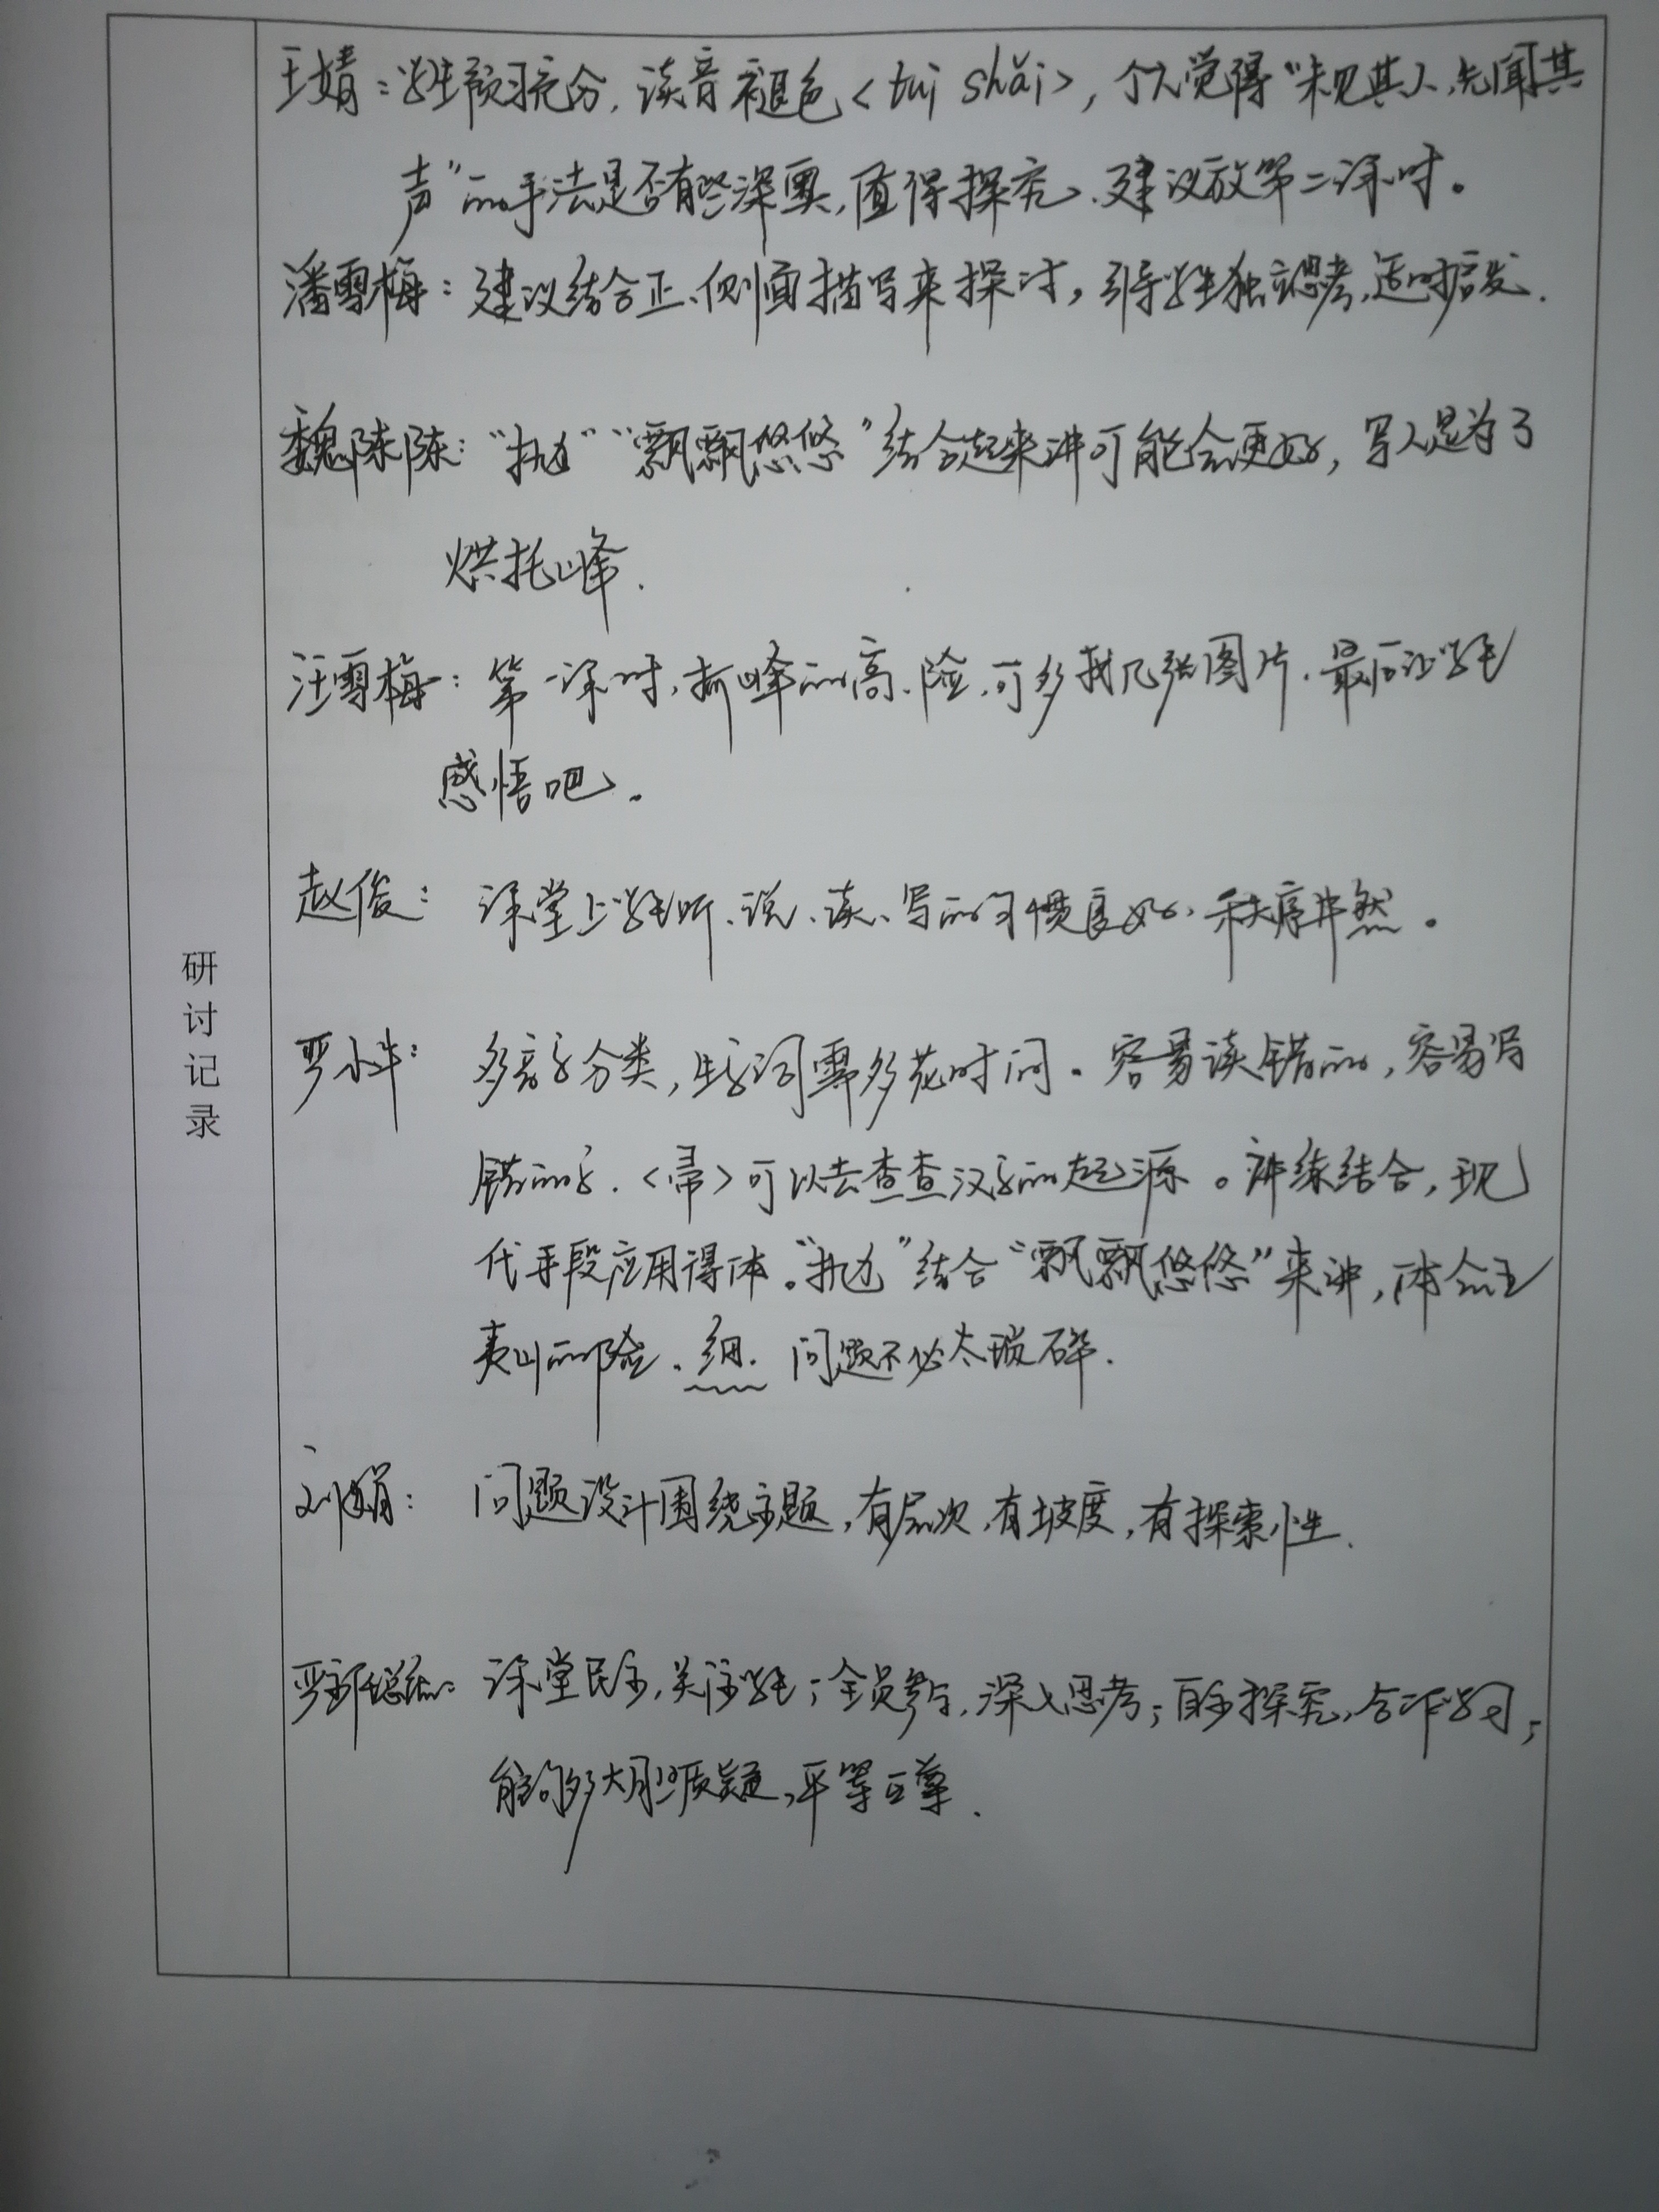 王婧：学生预习充分，读音褪色<tuì shǎi>，个人觉得“未见其人，先闻其
声”的手法是否有些深奥，值得探究、建议放第二课时。
潘雪梅：建议结合正、侧面描写来探讨，引导学生独立思考，适时启发.
魏陈陈：“抛”“飘飘悠悠”结合起来讲可能会更好，写人是为了
烘托峰.
汪雪梅：第一课时，抓峰的高、险，可多找几张图片，最后让学生
感悟吧。
赵俊：课堂上学生听、说、读、写的习惯良好，秩序井然。
研讨记录
严小牛：多音字分类，生字词需多花时间。容易读错的，容易写
错的字.<帚>可以去查查汉字的起源。讲练结合，现
代手段应用得体。“抛”结合“飘飘悠悠”来讲，体会武
夷山的险。细. 问题不必太琐碎.
刘娟：问题设计围绕主题，有层次，有坡度，有探索性.
严主任总结：课堂民主，关注学生；全员参与，深入思考；自主探究，合作学习；
能够大胆质疑，平等互尊.